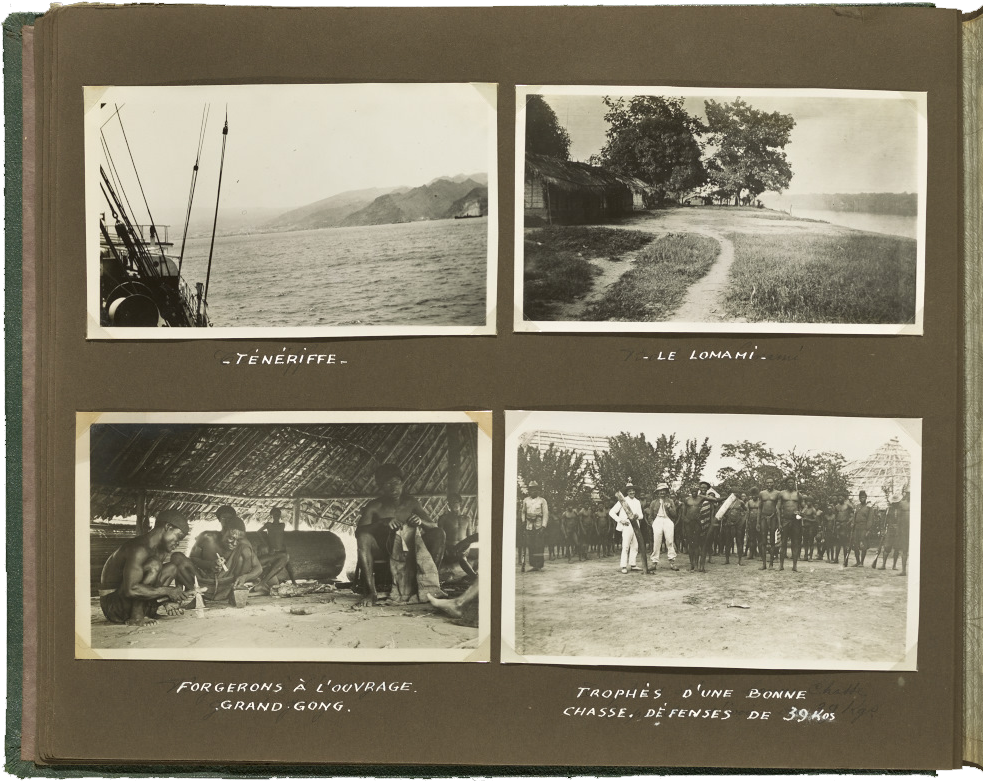 - TÉNÉRIFFE -
- LE LOMAMI -
FORGERONS À L'OUVRAGE.
GRAND GONG.
TROPHÉS D'UNE BONNE
CHASSE. DÉFENSES DE 39 KOS